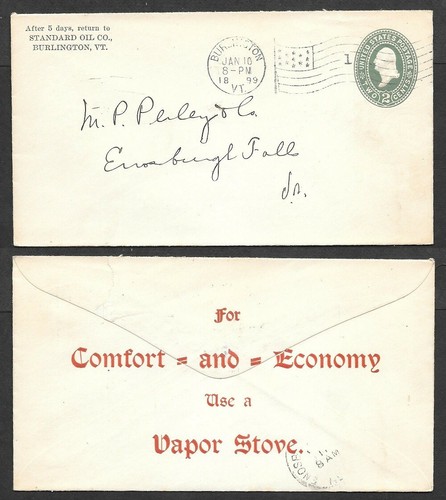 After 5 days, return to
STANDARD OIL CO.,
BURLINGTON, VT.
BURLINGTON
JAN 10
8-PM
18 99
VT.
1
UNITED STATES POSTAGE
TWO 2 CENTS
M. P. Perley & Co.
Enosburgh Falls
Vt.
For
Comfort = and = Economy
Use a
Vapor Stove.
8 AM
ENOSB